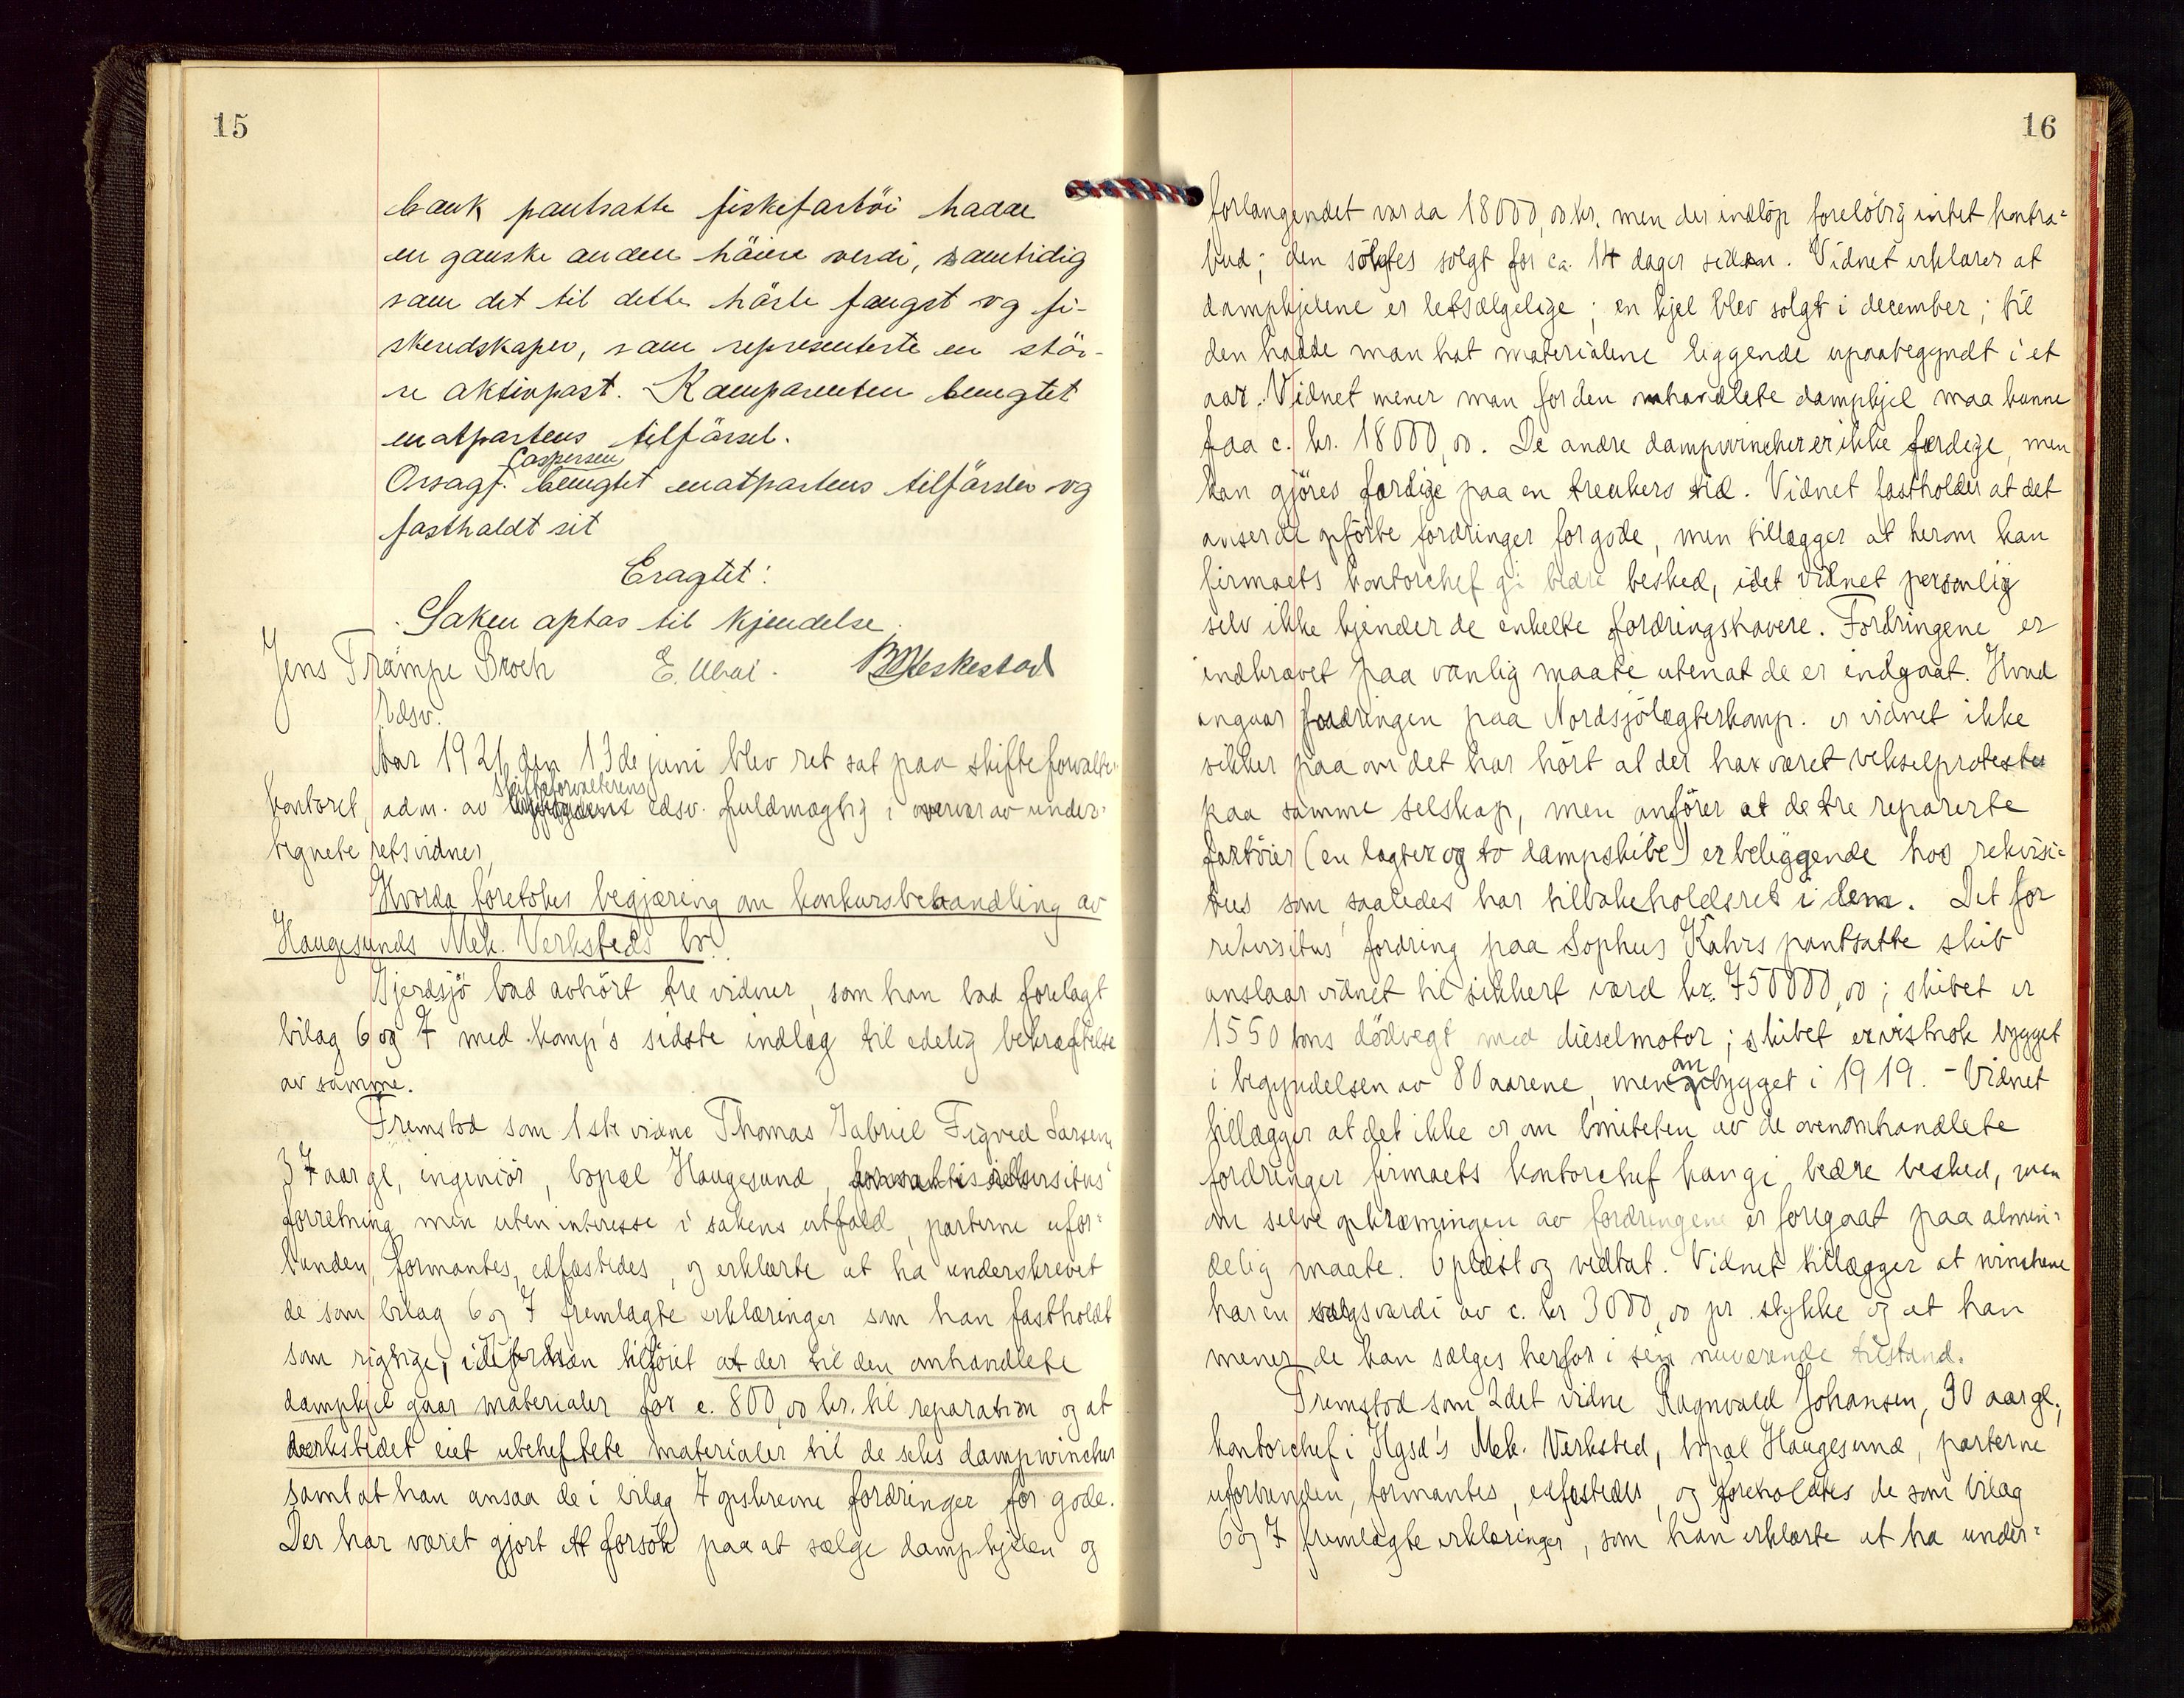 15
bank pantsatte fiskefartöi hadde
en ganske anden höiere verdi, samtidig
som det til dette hörte fangst og fi-
skeredskaper, som representerte en stör-
re aktivpost. Komparenten benegtet
motpartens tilförsel.
Caspersen
Orsagf. benegtet motpartens tilförsler og
fastholdt sit
Eragtet:
Saken optas til kjendelse.
Jens Trampe Broch E. Ubøe. B. Meskestad
Edsv.
Aar 1921 den 13de juni blev ret sat paa skifteforvalter-
skifteforvalterens
kontoret, adm. av edsv. fuldmægtig i overvær av under-
tegnete retsvidner,
Hvorda foretokes begjæring om konkursbehandling av
Haugesunds Mek. Verksteds bo.
Gjerdsjö bad avhört tre vidner, som han bad forelagt
bilag 6 og 7 med komp's sidste indlæg til edelig bekræftelse
av samme.
Fremstod som 1ste vidne Thomas Gabriel Figved Larsen,
37 aar gl, ingeniör, bopæl Haugesund, rekvisitus'
forretning men uten interesse i sakens utfald, parterne ufor-
bunden, formantes, edfæstedes, og erklærte at ha underskrevet
de som bilag 6 og 7 fremlagte erklæringer som han fastholdt
som rigtige, idet han tilföiet at der til den omhandlete
dampkjel gaar materialer for c. 800,00 kr. til reparation og at
verkstedet eiet ubeheftete materialer til de seks dampwincher
samt at han ansaa de i bilag 7 opskrevne fordringer for gode.
Der har været gjort et forsök paa at sælge dampkjelen og
16
forlangendet var da 18000,00 kr. men der indlöp forelöbig intet kontra-
bud; den söktes solgt for ca. 14 dager siden. Vidnet erklærer at
dampkjelene er letsælgelige; en kjel blev solgt i december; til
den hadde man hat materialene liggende upaabegyndt i et
aar. Vidnet mener man for den omhandlete dampkjel maa kunne
faa c. kr. 18000,00. De andre dampwincher er ikke færdige, men
kan gjöres færdige paa en treukers tid. Vidnet fastholder at det
anser de opförte fordringer for gode, men tillægger at herom kan
firmaets kontorchef gi bedre besked, idet vidnet personlig
selv ikke kjender de enkelte fordringshavere. Fordringene er
indkrævet paa vanlig maate uten at de er indgaat. Hvad
angaar fordringen paa Nordsjölægterkomp. er vidnet ikke
sikker paa om det har hört at der har været vekselprotester
paa samme selskap, men anförer at de tre reparerte
fartöier (en lægter og to dampskibe) er beliggende hos rekvisi-
tus som saaledes har tilbakeholdsret i dem. Det for
rekvisitus' fordring paa Sophus Kahrs pantsatte skib
anslaar vidnet til sikkert værd kr. 750000,00; skibet er
1550 tons dödvegt med dieselmotor; skibet er vistnok bygget
om
i begyndelsen av 80 aarene, men bygget i 1919. - Vidnet
tillægger at det ikke er om boniteten av de ovenomhandlete
fordringer firmaets kontorchef kan gi bedre besked, men
om selve opkrævningen av fordringene er foregaat paa almin-
delig maate. Oplæst og vedtat. Vidnet tillægger at winchene
har en salgsværdi av c. kr 3000,00 pr. stykke og at han
mener de kan sælges herfor i sin nuværende tilstand.
Fremstod som 2det vidne Ragnvald Johansen, 30 aar gl.,
kontorchef i Hgsd's Mek. Verksted, bopæl Haugesund, parterne
uforbunden, formantes, edfæstedes, og foreholdtes de som bilag
6 og 7 fremlagte erklæringer, som han erklærte at ha under-